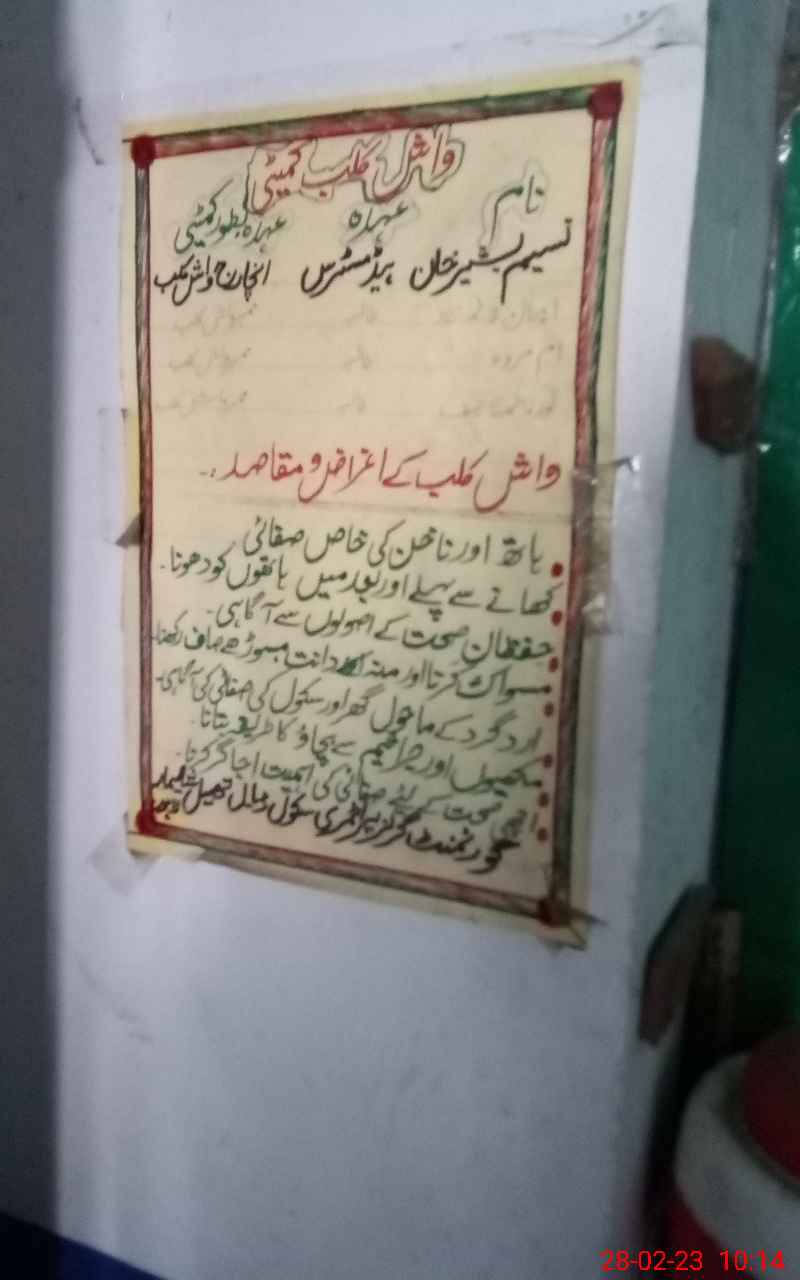 واش کلب کمیٹی
نام عہدہ عہدہ بطور کمیٹی
نسیم بشیر خان ہیڈ مسٹرس انچارج واش کلب
ام مروہ طالبہ ممبر واش کلب
واش کلب کے اغراض و مقاصد :۔
ہاتھ اور ناخن کی خاص صفائی
کھانے سے پہلے اور بعد میں ہاتھوں کو دھونا۔
حفظان صحت کے اصولوں سے آگاہی۔
مسواک کرنا اور منہ دانت مسوڑھے صاف رکھنا۔
ارد گرد کے ماحول گھر اور سکول کی صفائی کی آگاہی۔
مکھیوں اور جراثیم سے بچاؤ کا طریقہ بتانا۔
اچھی صحت کے لیے صفائی کی اہمیت اجاگر کرنا۔
گورنمنٹ گرلز پرائمری سکول تحصیل
28-02-23 10:14